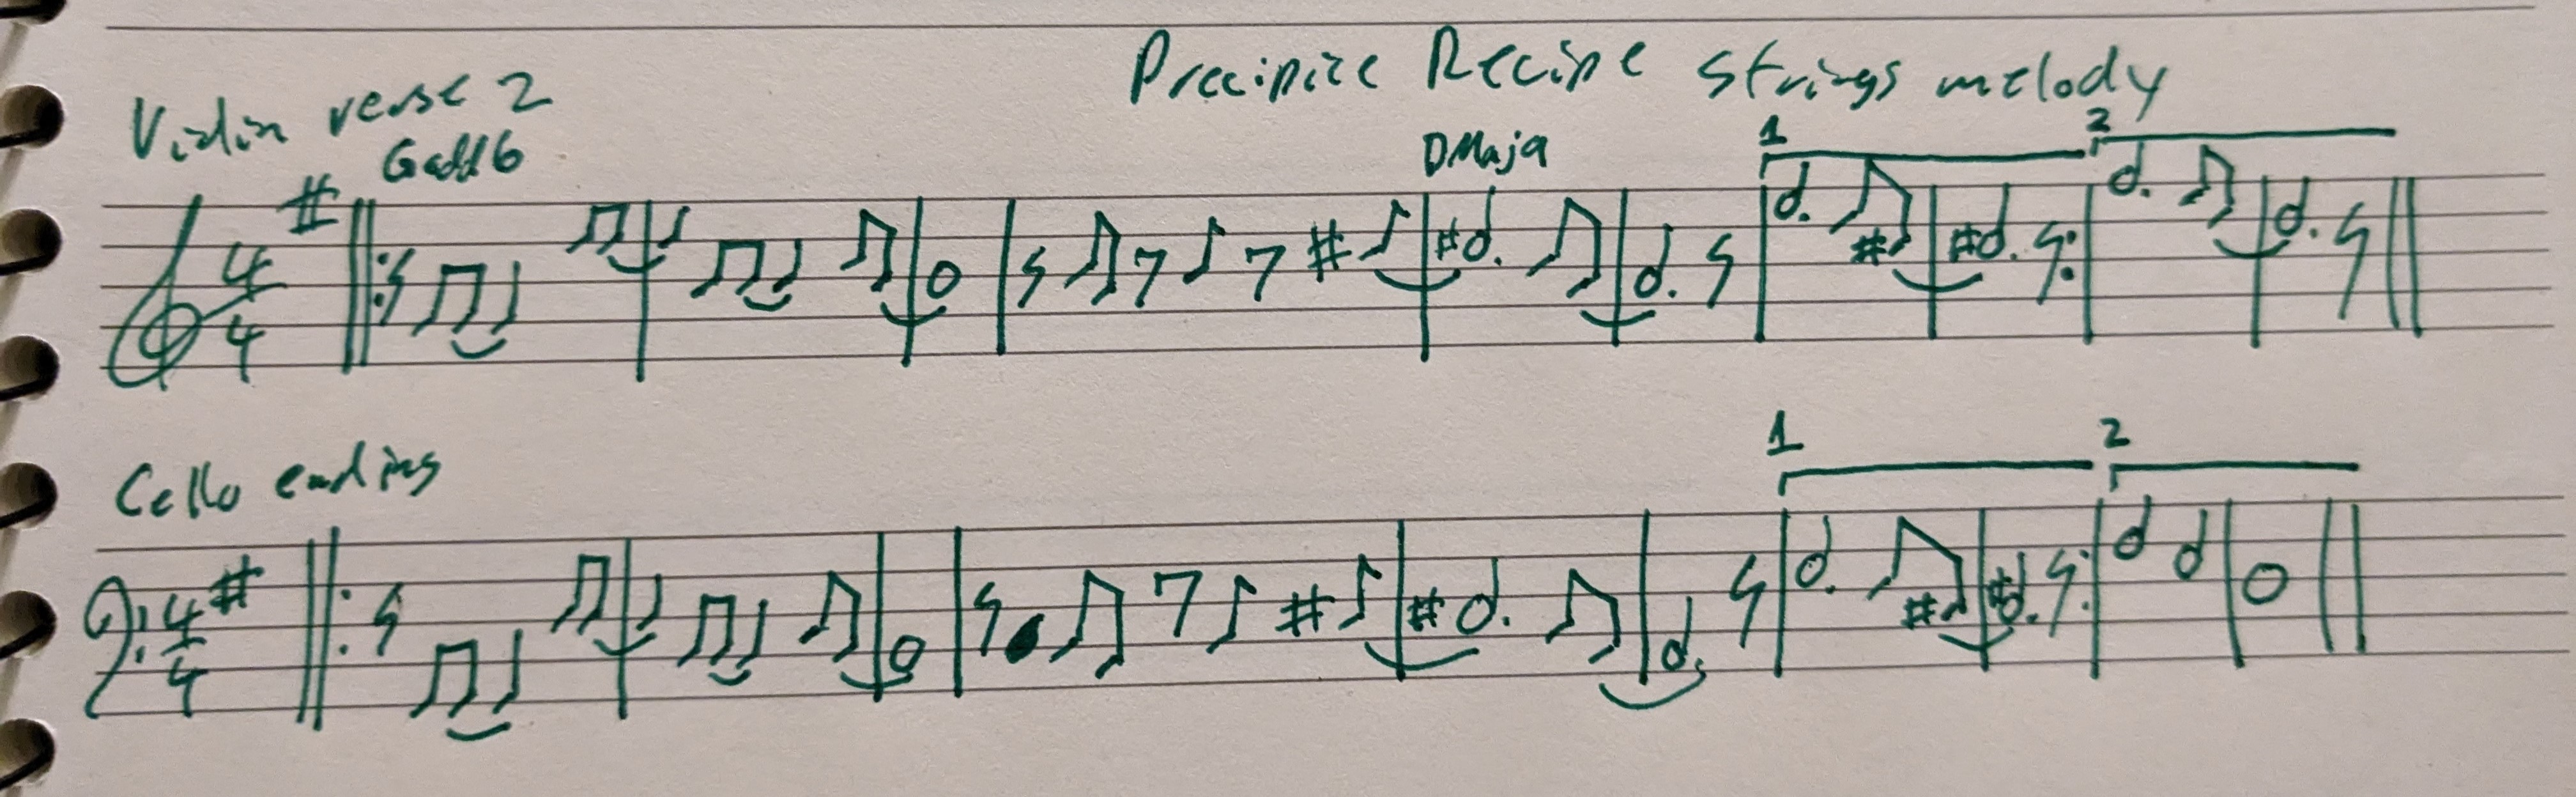 Precipice Recipe strings melody
Violin verse 2
Gadd6
DMaj9
1
2
4
4
Cello ending
1
2
4
4